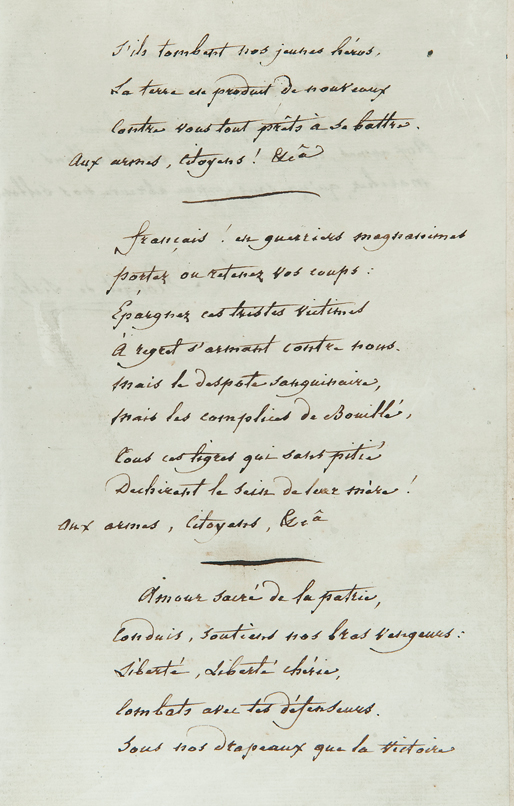 S'ils tombent nos jeunes héros,
La terre en produit de nouveaux
Contre vous tout prêts à se battre.
Aux armes, Citoyens! &câ
français! en guerriers magnanimes
portez ou retenez vos coups:
Epargnez ces tristes victimes
À regret s'armant contre nous.
Mais le despote sanguinaire,
Mais les complices de Bouillé,
Tous ces tigres qui sans pitié
Dechirent le sein de leur mère!
Aux armes, Citoyens, &câ
Amour sacré de la patrie,
Conduis, Soutiens nos bras vengeurs:
Liberté, Liberté chérie,
Combats avec tes défenseurs.
Sous nos drapeaux que la victoire